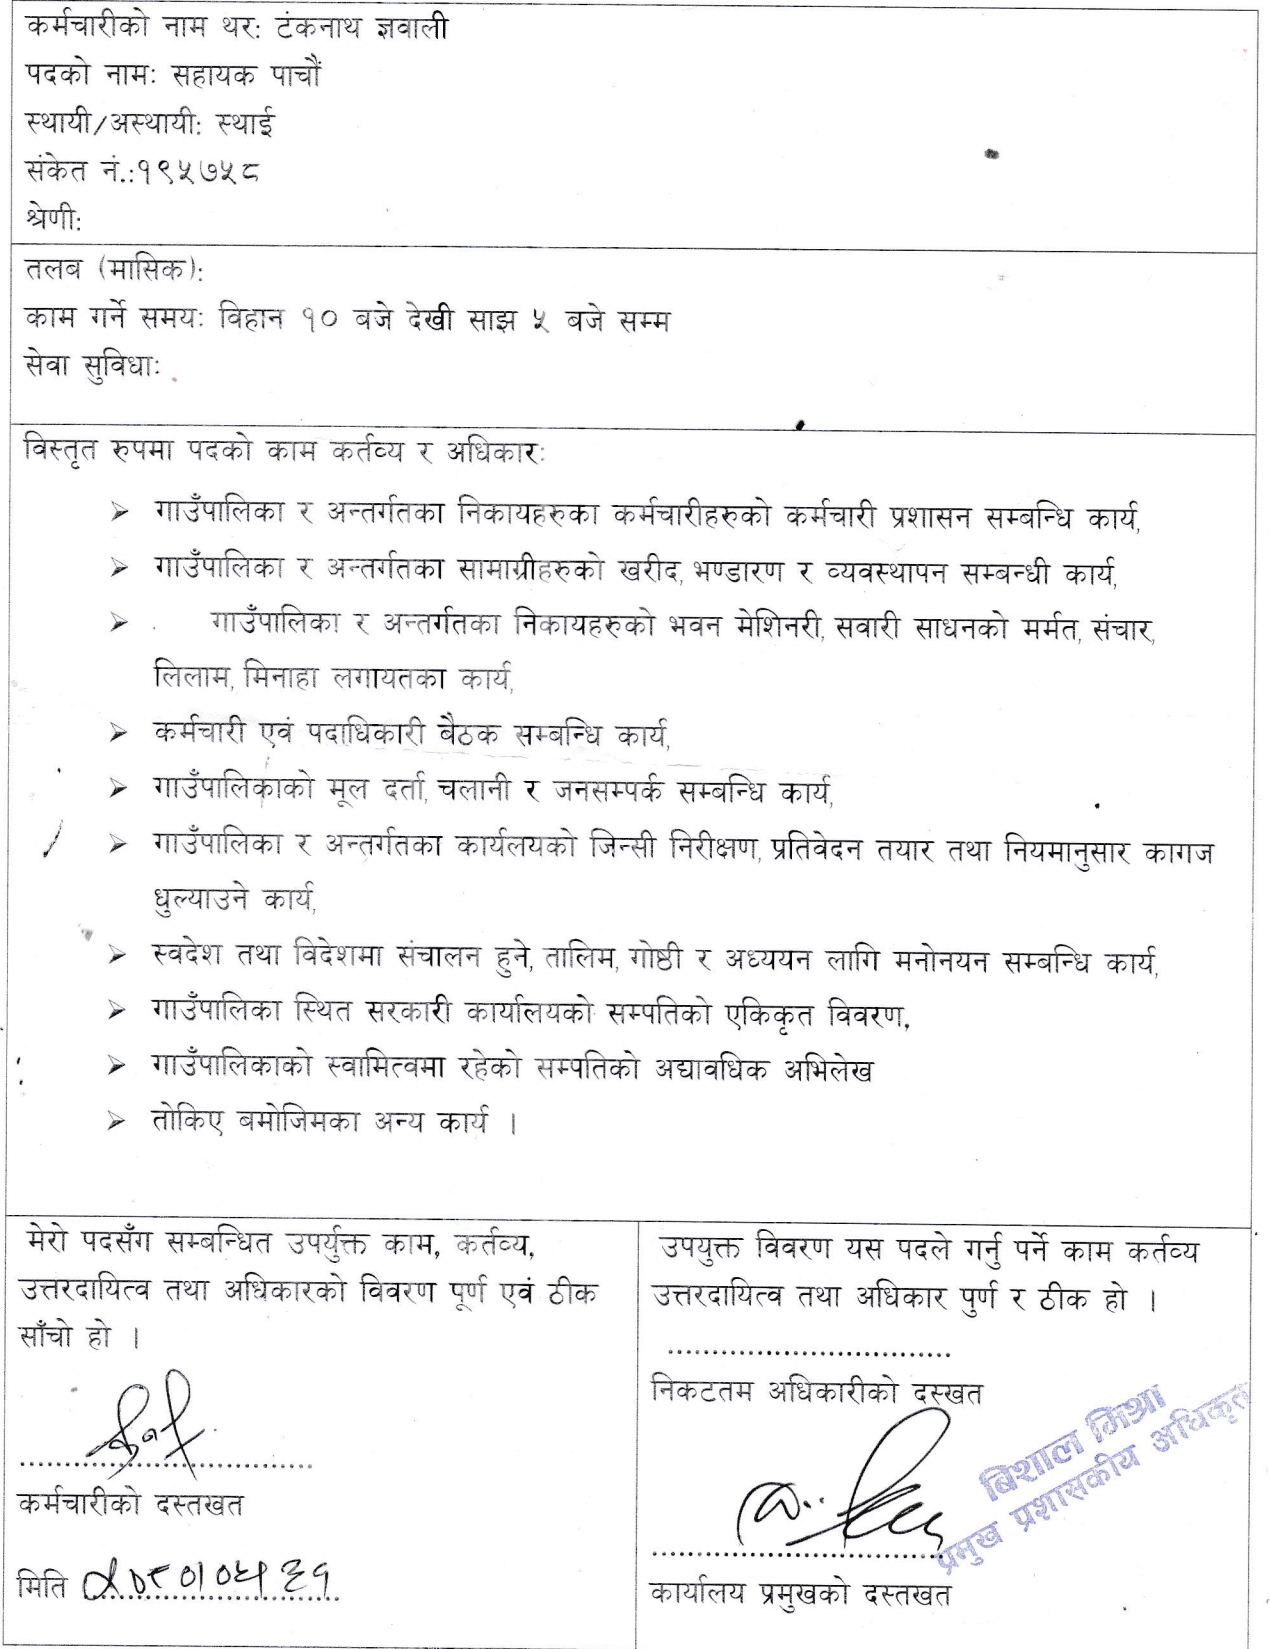 कर्मचारीको नाम थर: टंकनाथ ज्ञवाली
पदको नाम: सहायक पाचौं
स्थायी/अस्थायी: स्थाई
संकेत नं.:१९५७५८
श्रेणी:
तलब (मासिक):
काम गर्ने समय: विहान १० बजे देखी साझ ५ बजे सम्म
सेवा सुविधा:
विस्तृत रुपमा पदको काम कर्तव्य र अधिकार:
➢ गाउँपालिका र अन्तर्गतका निकायहरुका कर्मचारीहरुको कर्मचारी प्रशासन सम्बन्धि कार्य,
➢ गाउँपालिका र अन्तर्गतका सामाग्रीहरुको खरीद, भण्डारण र व्यवस्थापन सम्बन्धी कार्य,
➢ गाउँपालिका र अन्तर्गतका निकायहरुको भवन मेशिनरी, सवारी साधनको मर्मत, संचार,
लिलाम, मिनाहा लगायतका कार्य,
➢ कर्मचारी एवं पदाधिकारी बैठक सम्बन्धि कार्य,
➢ गाउँपालिकाको मूल दर्ता, चलानी र जनसम्पर्क सम्बन्धि कार्य,
➢ गाउँपालिका र अन्तर्गतका कार्यलयको जिन्सी निरीक्षण, प्रतिवेदन तयार तथा नियमानुसार कागज
धुल्याउने कार्य,
➢ स्वदेश तथा विदेशमा संचालन हुने, तालिम, गोष्ठी र अध्ययन लागि मनोनयन सम्बन्धि कार्य,
➢ गाउँपालिका स्थित सरकारी कार्यालयको सम्पतिको एकिकृत विवरण,
➢ गाउँपालिकाको स्वामित्वमा रहेको सम्पतिको अद्यावधिक अभिलेख
➢ तोकिए बमोजिमका अन्य कार्य ।
मेरो पदसँग सम्बन्धित उपर्युक्त काम, कर्तव्य,
उत्तरदायित्व तथा अधिकारको विवरण पूर्ण एवं ठीक
साँचो हो ।
कर्मचारीको दस्तखत
मिति
उपयुक्त विवरण यस पदले गर्नु पर्ने काम कर्तव्य
उत्तरदायित्व तथा अधिकार पुर्ण र ठीक हो ।
निकटतम अधिकारीको दस्खत
बिशाल मिश्रा
प्रमुख प्रशासकीय अधिकृत
कार्यालय प्रमुखको दस्तखत